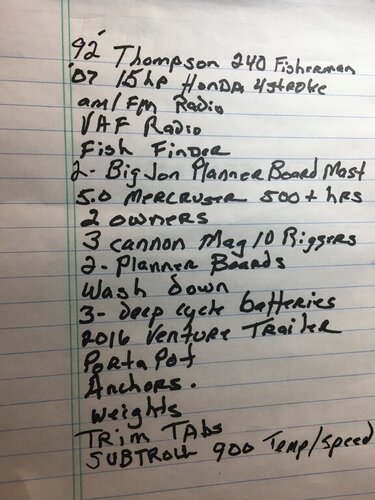 92' Thompson 240 Fisherman
'07 15hp HONDA 4stroke
am/Fm Radio
VAF Radio
Fish Finder
2- Big Jon Planner Board Mast
5.0 MERCRUSER 500+ hrs
2 owners
3 cannon Mag 10 Riggers
2- Planner Boards
Wash down
3- deep cycle batteries
2016 Venture Trailer
Porta Pot
Anchors.
weights
TRim TAbs
SUBTROLL 900 Temp/Speed